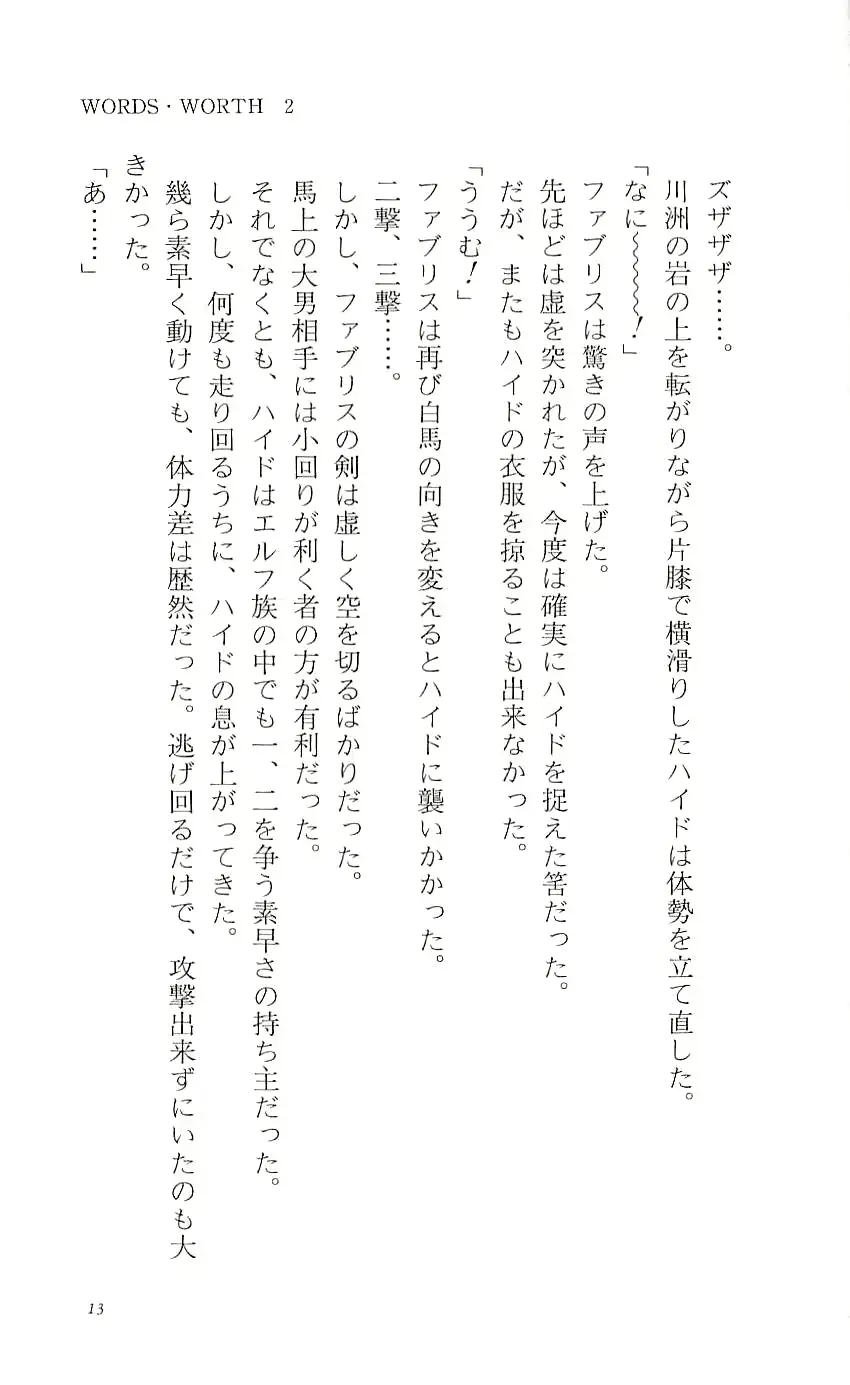 WORDS・WORTH 2
ズザザザ……。
川洲の岩の上を転がりながら片膝で横滑りしたハイドは体勢を立て直した。
「なに〜〜〜〜！」
ファブリスは驚きの声を上げた。
先ほどは虚を突かれたが、今度は確実にハイドを捉えた筈だった。
だが、またもハイドの衣服を掠ることも出来なかった。
「ううむ！」
ファブリスは再び白馬の向きを変えるとハイドに襲いかかった。
二撃、三撃……。
しかし、ファブリスの剣は虚しく空を切るばかりだった。
馬上の大男相手には小回りが利く者の方が有利だった。
それでなくとも、ハイドはエルフ族の中でも一、二を争う素早さの持ち主だった。
しかし、何度も走り回るうちに、ハイドの息が上がってきた。
幾ら素早く動けても、体力差は歴然だった。逃げ回るだけで、攻撃出来ずにいたのも大
きかった。
「あ……」
13